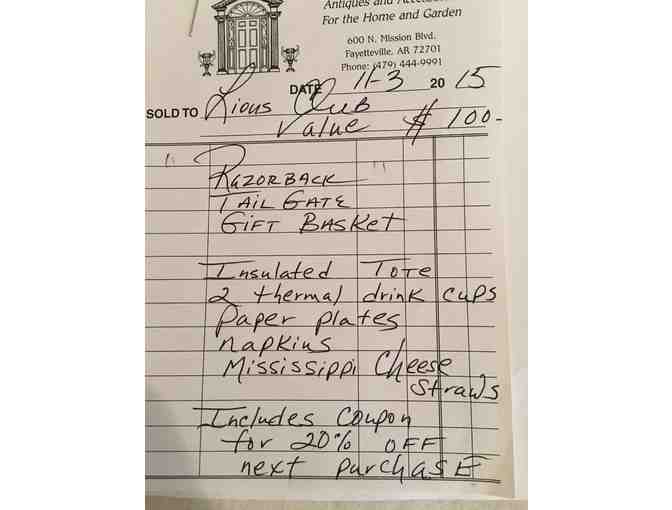 Antiques and
For the Home and Garden
600 N. Mission Blvd.
Fayetteville, AR 72701
Phone: (479) 444-9991
DATE 11-3 20 15
SOLD TO Lions Club
Value $ 100-
" Razorback "
Tail Gate
Gift Basket
Insulated Tote
2 thermal drink cups
Paper plates
napkins
Mississippi Cheese
Straws
Includes Coupon
for 20% OFF
next purchase